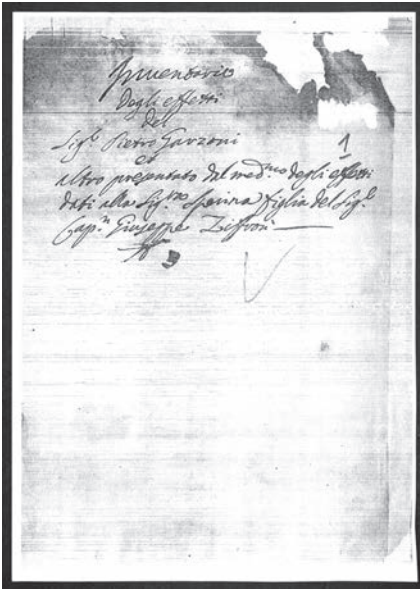 Inventario
Degli effetti
Del
Sig.e Pietro Garzoni
et
1
altro presentato dal med.mo degli effetti
dati alla Sig.ra figlia del Sig.e
Cap.n Giuseppe